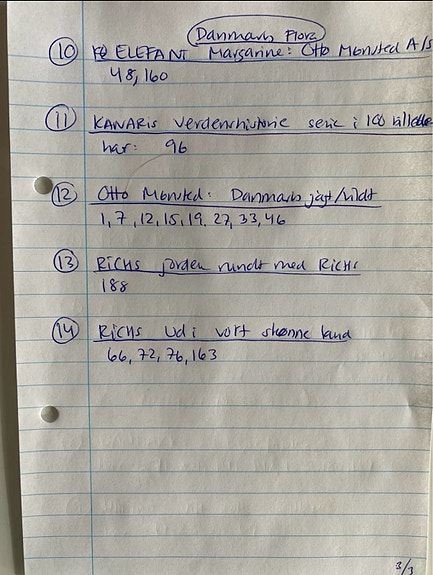 Danmarks Flora
10 ELEFANT Margarine: Otto Mønsted A/S
48, 160
11 KANARIS Verdenshistorie serie i 100 billeder
har: 96
12 Otto Mønsted: Danmarks jagt/vildt
1, 7, 12, 15, 19, 27, 33, 46
13 RICHS jorden rundt med RICHS
188
14 RICHS Ud i vort skønne land
66, 72, 76, 163
3/3